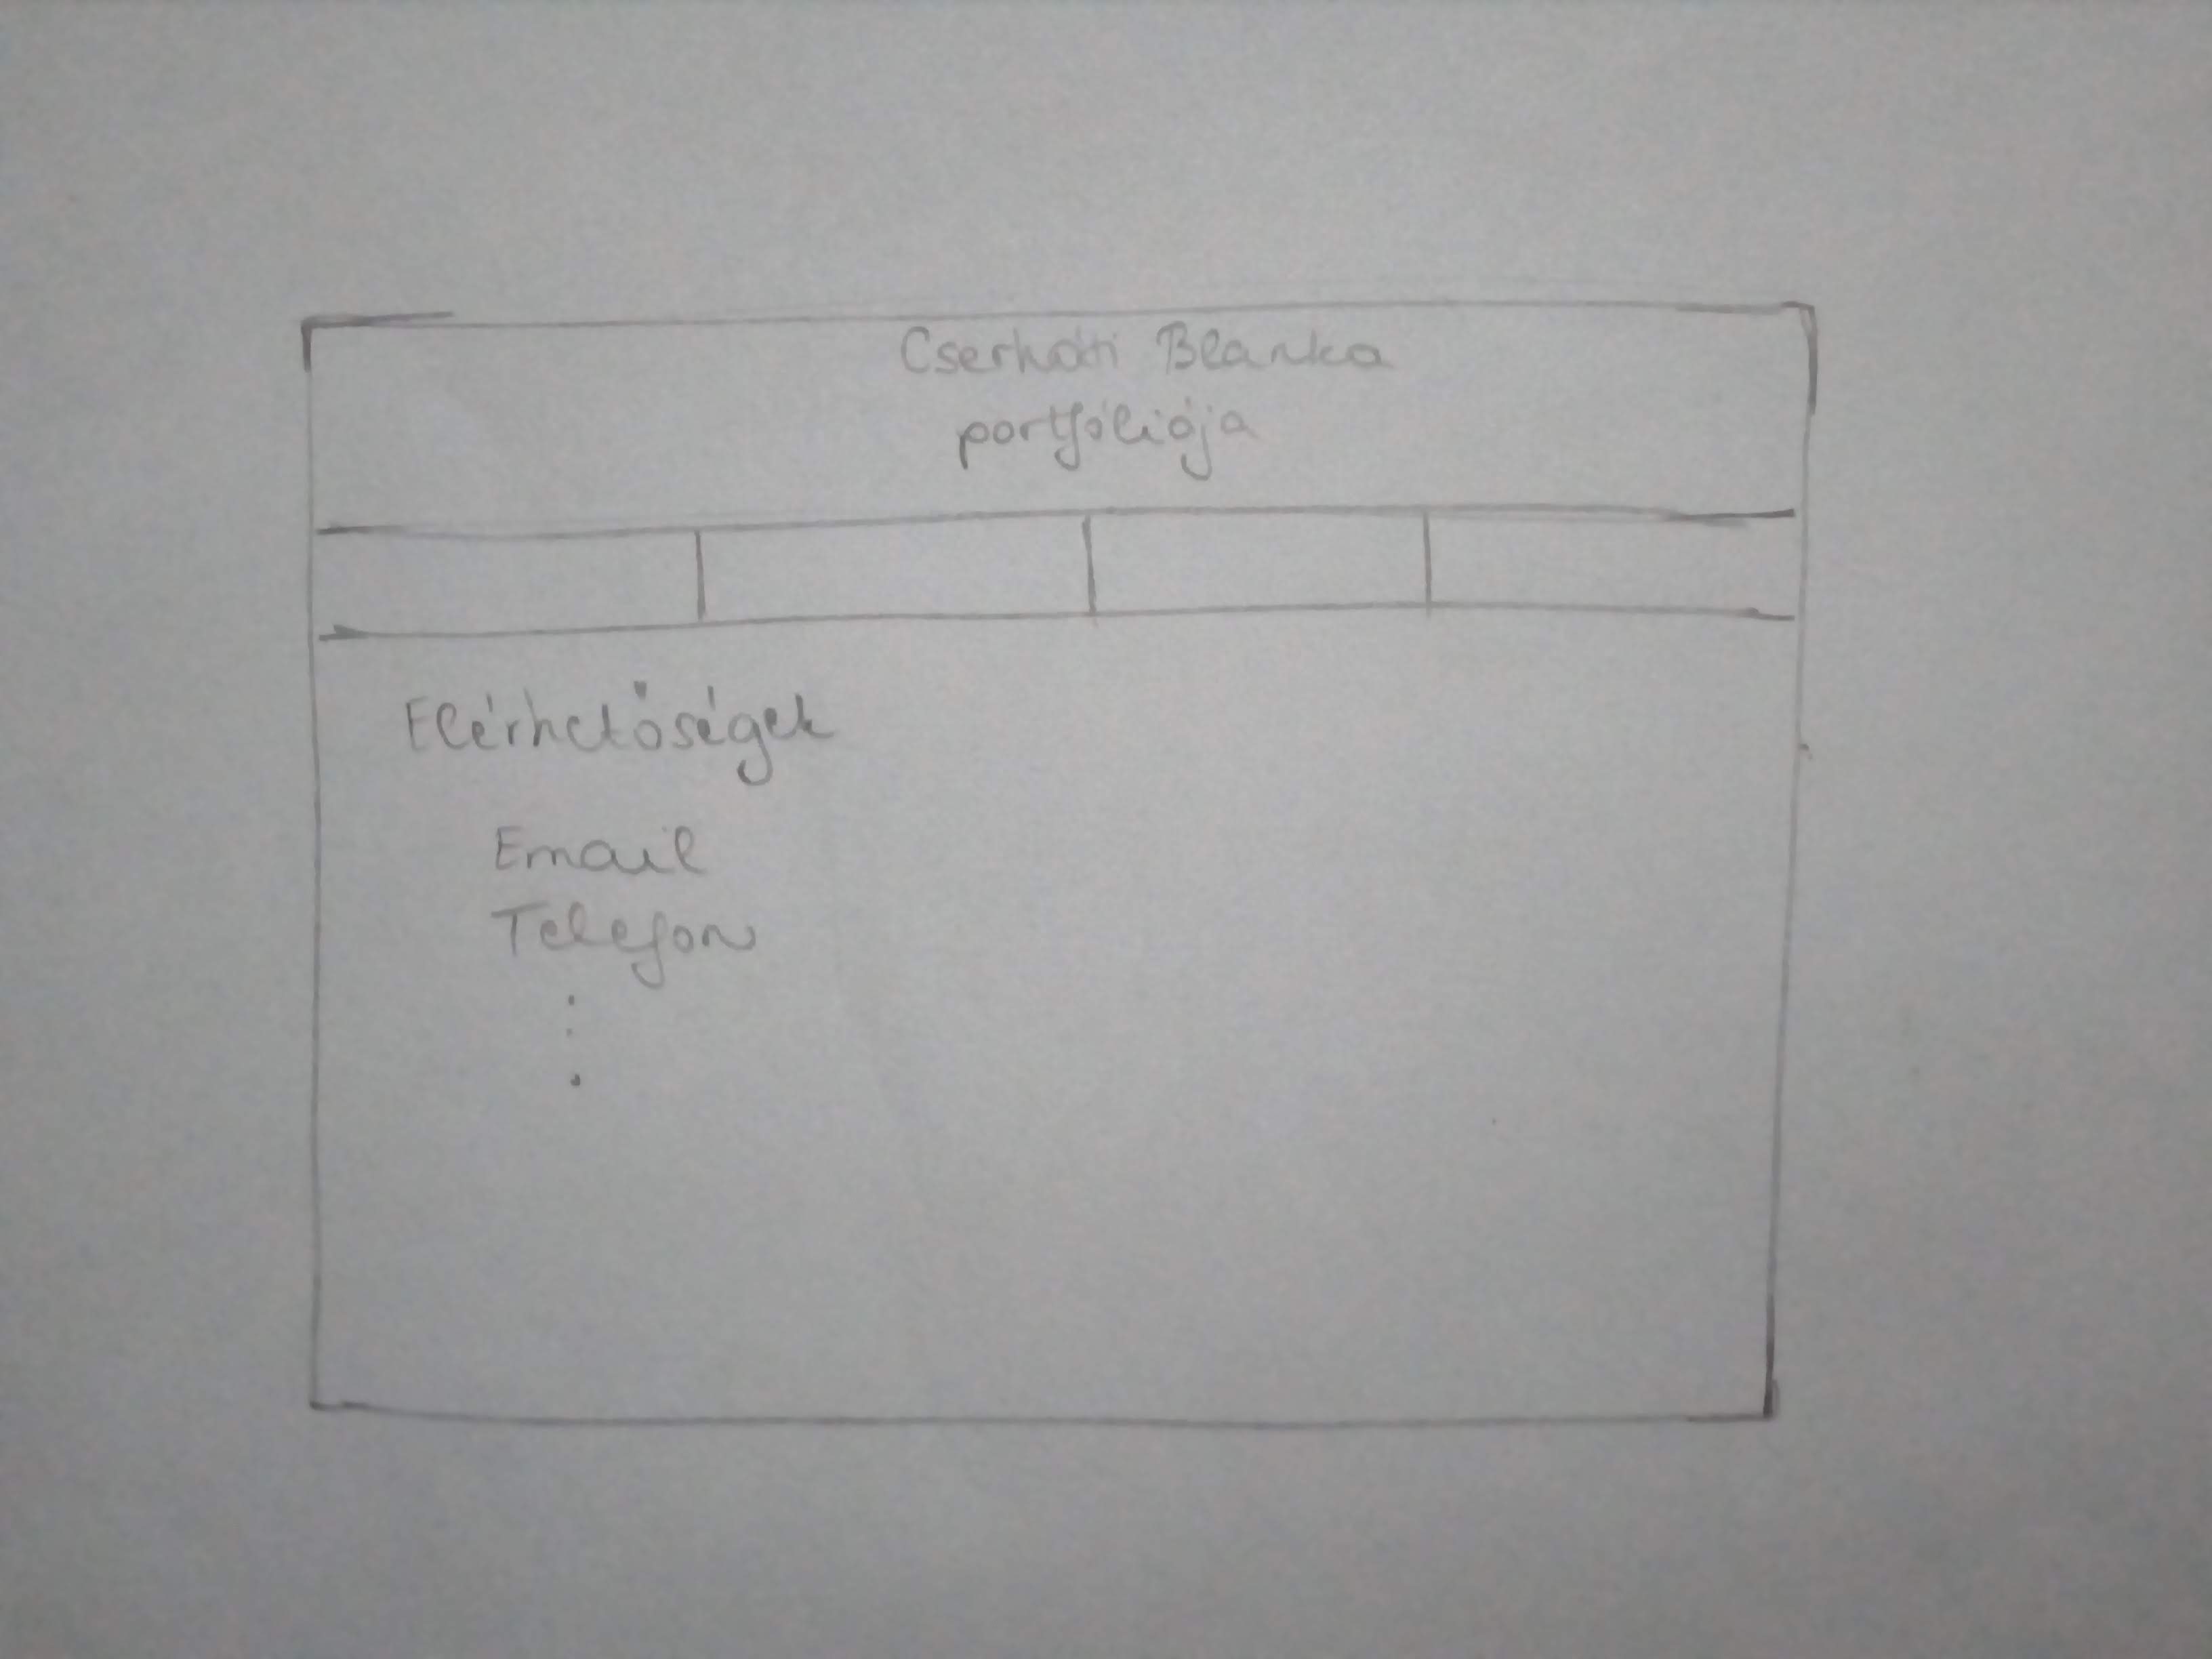 Cserháti Blanka
portfóliója
Elérhetőségek
Email
Telefon